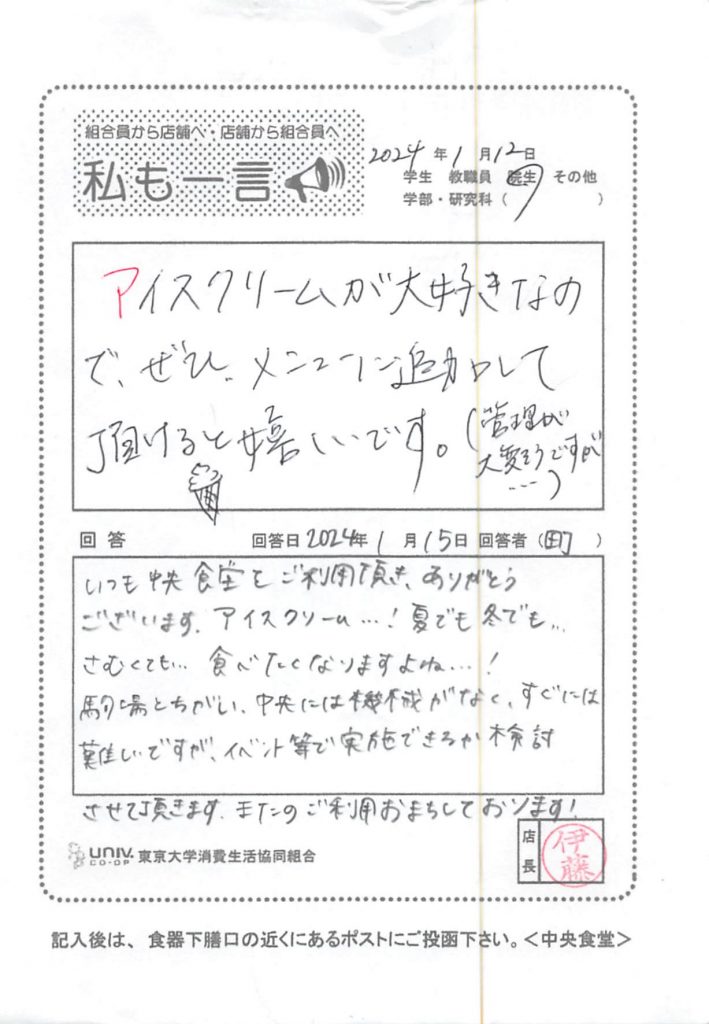 組合員から店舗へ・店舗から組合員へ
私も一言
2024年1月12日
学生 教職員 院生 その他
学部・研究科( )
アイスクリームが大好きなの
で、ぜひ、メニューに追加して
頂けると嬉しいです。(管理が
大変そうですが
…)
回答 回答日2024年1月15日 回答者(町)
いつも中央食堂をご利用頂き、ありがとう
ございます。アイスクリーム…!夏でも冬でも…
さむくても…食べたくなりますよね…!
駒場とちがい、中央には機械がなく、すぐには
難しいですが、イベント等で実施できるか検討
させて頂きます。またのご利用おまちしております!
店長 伊藤
UNIV. CO-OP 東京大学消費生活協同組合
記入後は、食器下膳口の近くにあるポストにご投函下さい。<中央食堂>